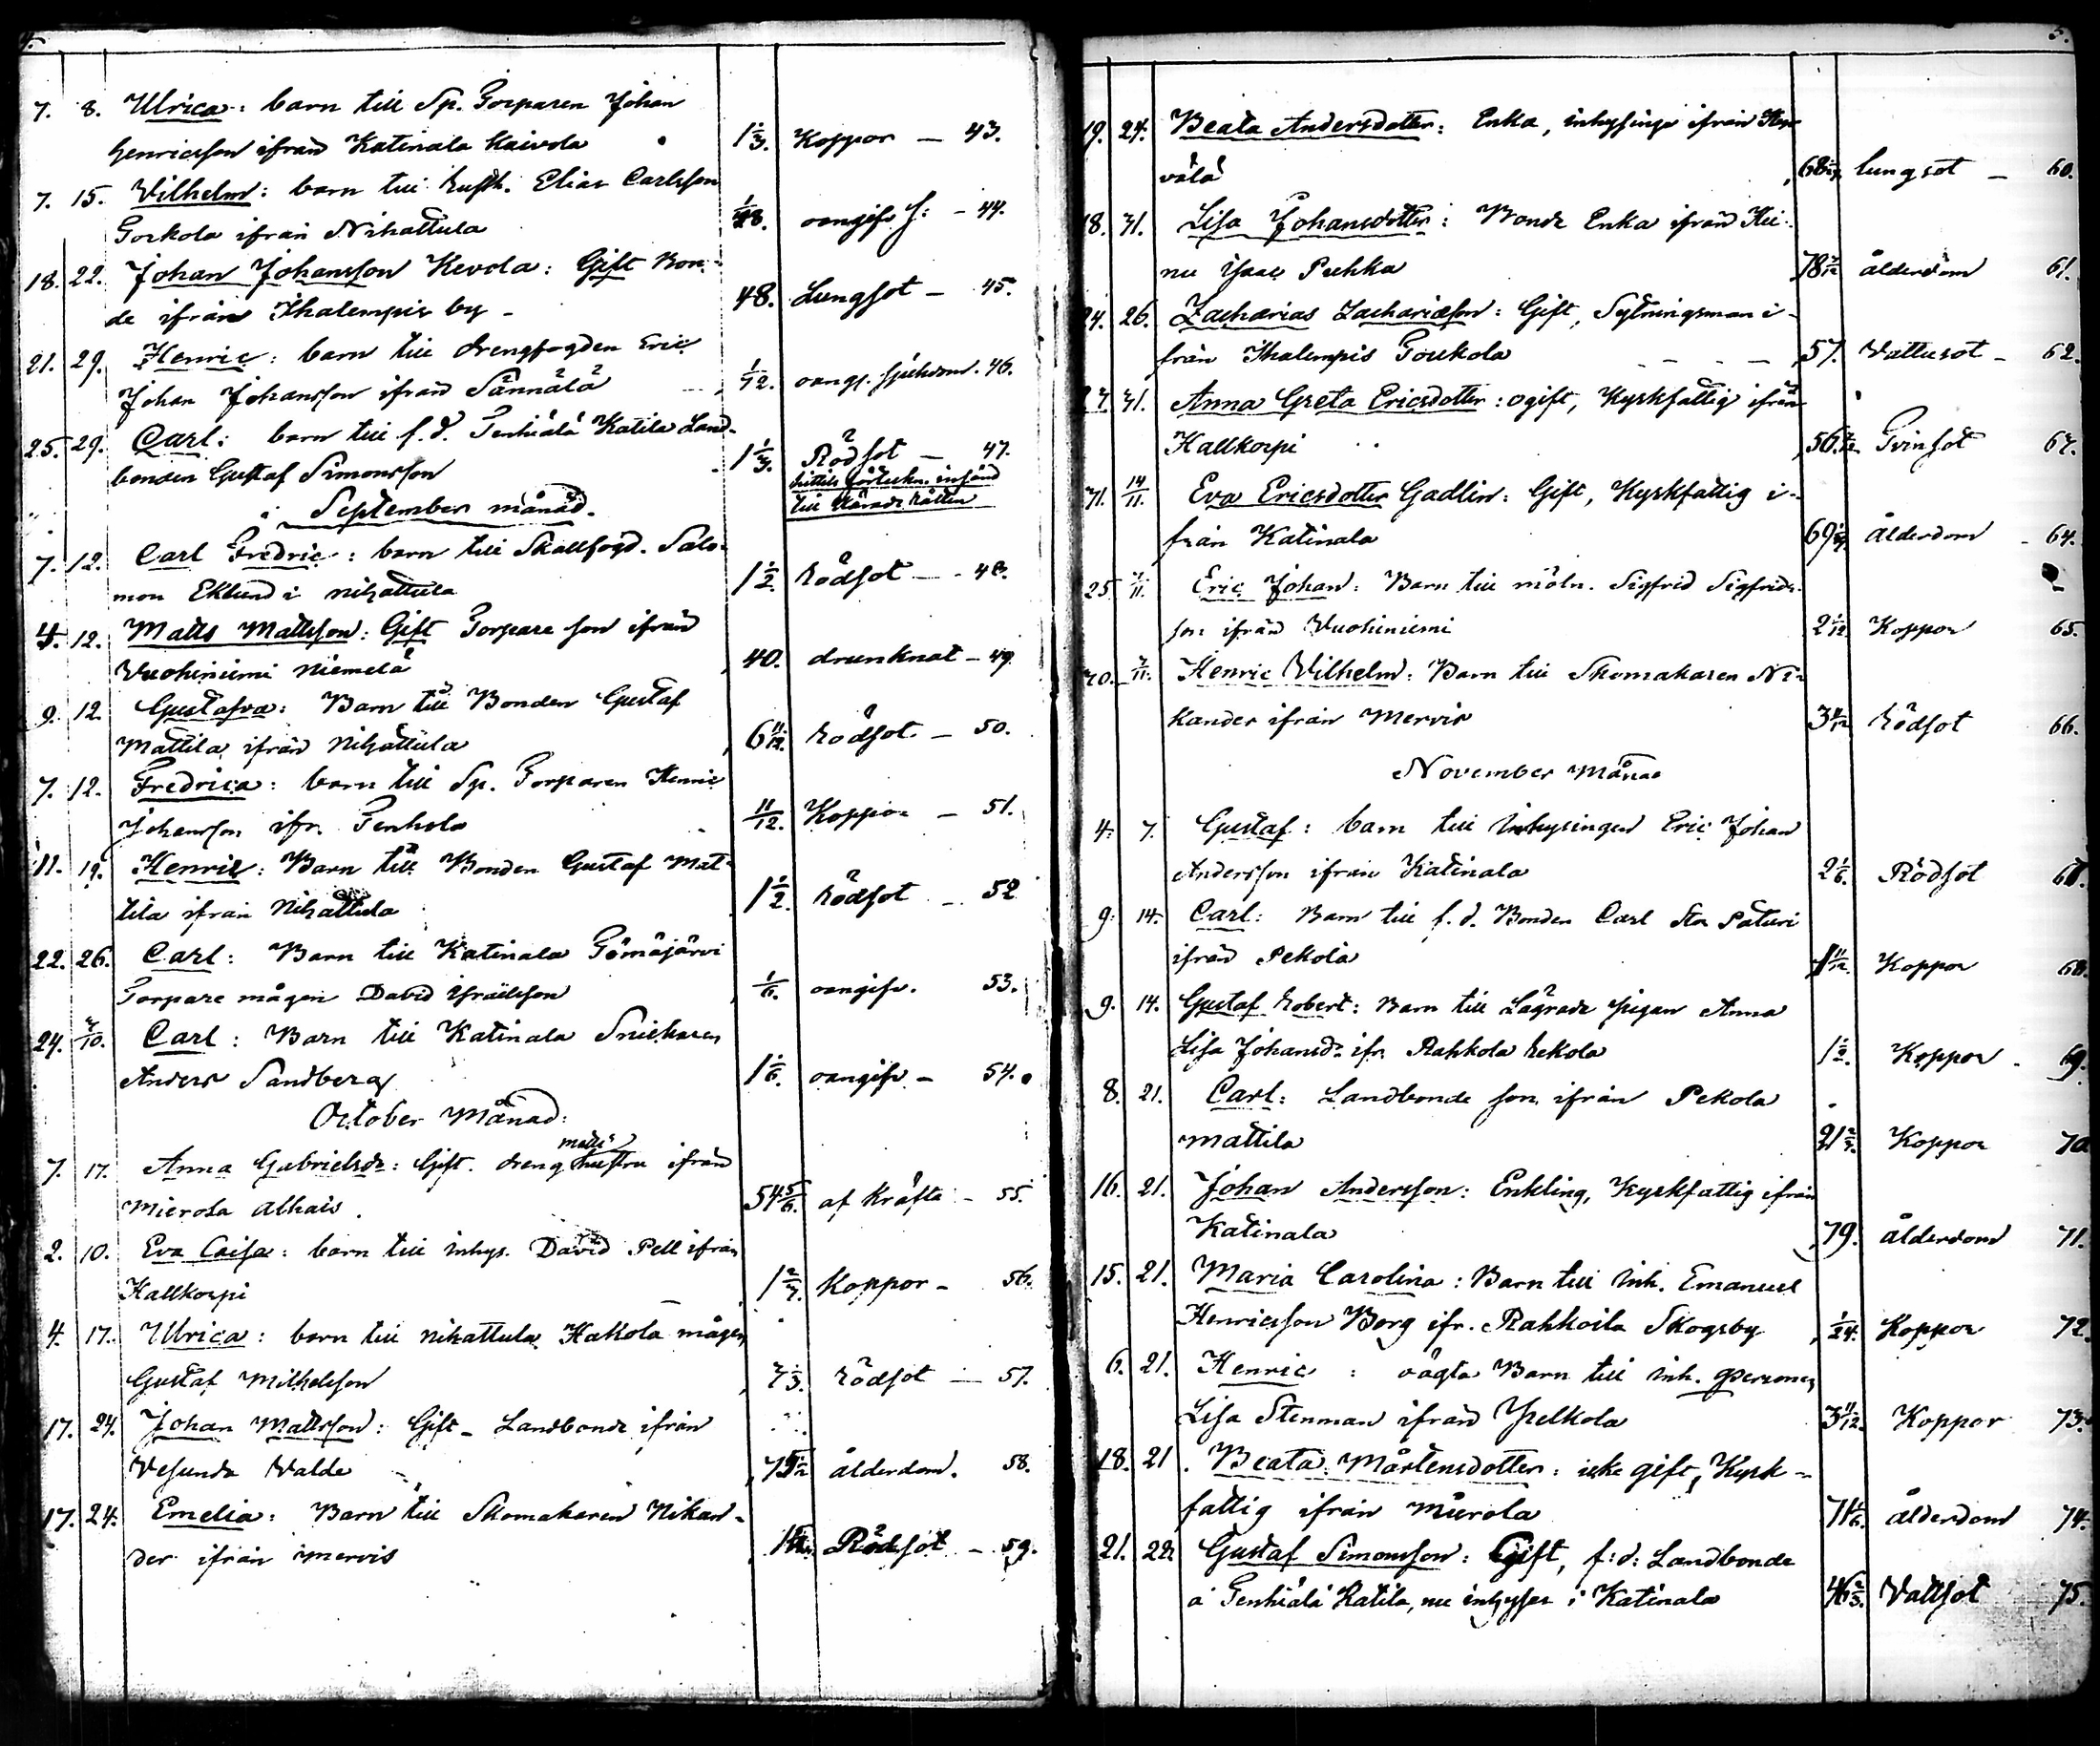 4.
7. 8. Ulrica: barn till Sp. Torparen Johan
Henricsson ifrån Katinala Kaivola 1 1/3. Koppor — 43.
7. 15. Vilhelm: barn till Rusth. Elias Carlsson
Torkola ifrån Nihattula oangifv. s: - 44.
18. 22. Johan Johansson Kevola: Gift Bon-
de ifrån Ihalempis by - 48. Lungsot - 45.
21. 29. Henric: barn till drengfogden Eric
Johan Johansson ifrån Sännälä 1/12. oang. sjukdom. 46.
25. 29. Carl: barn till f.d. Tenhiälä Katila Land-
bonden Gustaf Simonsson 1 1/3. Rödsot — 47.
hittils förteckn. insänd
till Härads Rätten
September månad.
7. 12. Carl Fredric: barn till Skallfogd. Salo-
mon Eklund i Nihattula 1 1/2. Rödsot — 48.
4. 12. Matts Mattsson: Gift Torpare son ifrån
Vuohiniemi Niemelä 40. drunknat - 49
9. 12. Gustafva: Barn till Bonden Gustaf
Mattila ifrån Nihattula 6 11/12. Rödsot. — 50.
7. 12. Fredrica: barn till Sp. Torparen Henric
Johansson ifr. Tenhola 11/12. Koppor — 51.
11. 19. Henric: Barn till Bonden Gustaf Mat-
tila ifrån Nihattula 1 1/2. Rödsot — 52
22. 26. Carl: Barn till Katinala Tömäjärvi
Torpare mågen David Israelsson 1/6. oangifv. 53.
24. 3/10. Carl: Barn till Katinala Snickaren
Anders Sandberg 1 1/6. oangifv - 54.
October Månad:
7. 17. Anna Gabrielsdr: Gift. dreng hustru ifrån
Mierola Alhais. 54 5/6. af Kräfta - 55.
2. 10. Eva Caisa: barn till inhys. David Pell ifrån
Hallkorpi 1 2/3. Koppor - 56.
4. 17. Ulrica: barn till Nihattula Hakola mågen
Gustaf Milhelsson Rödsot — 57.
17. 24. Johan Mattsson: Gift - Landbonde ifrån
Vesunda Valde ålderdom. 58.
17. 24. Emelia: Barn till Skomakaren Nikan-
der ifrån Mervis Rödsot — 59.
5.
19. 24. Beata Andersdotter: Enka, inhysinge ifrån
välä lungsot — 60.
18. 31. Lisa Johansdotter: Bonde Enka ifrån Kui-
nu Isac Puhka ålderdom 61.
24. 26. Zacharias Zachariæson: Gift, Sytningsman i-
från Ihalempis Toukola — — — 57. Vattusot - 62.
27. 31. Anna Greta Ericsdotter: ogift, Kyrkfattig ifrån
Hallkorpi Tvinsot 63.
31. 14/11. Eva Ericsdotter Gadlin: Gift, Kyrkfattig i-
från Katinala Ålderdom - 64.
25. 7/11. Eric Johan: Barn till möln. Sigfrid Sigfrids-
son ifrån Vuohiniemi 2 1/12. Koppor 65.
30. 7/11. Henric Vilhelm: Barn till Skomakaren Ni-
kander ifrån Mervis Rödsot 66.
November Månad
4. 7. Gustaf: barn till Inhysingen Eric Johan
Andersson ifrån Katinala 2 1/6. Rödsot 67.
9. 14. Carl: Barn till f.d. Bonden Carl Sta Paturi
ifrån Pekola 1 11/12. Koppor 68.
9. 14. Gustaf Robert: Barn till Lägrade pigan Anna
Lisa Johansdr. ifr. Rahkola Rekola 1 1/2. Koppor. 69.
8. 21. Carl: Landbonde son ifrån Pekola
Mattila 21 2/3. Koppor 70
16. 21. Johan Andersson: Enkling, Kyrkfattig ifrån
Katinala 79. ålderdom 71.
15. 21. Maria Carolina: Barn till Inh. Emanuel
Henricsson Borg ifr. Rahkoila Skogsby 1/24. Koppor 72.
6. 21. Henric: oägta Barn till inh. qpersonen
Lisa Stenman ifrån 3 11/12. Koppor 73.
18. 21. Beata Mårtensdotter: icke gift, Kyrk-
fattig ifrån Mierola 71 1/6. ålderdom 74.
21. 22. Gustaf Simonsson: Gift, f:d: Landbonde
å Tenhiälä Katila, nu inhyses i Katinala 46 2/3. Vattsot 75.